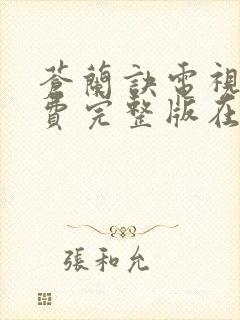 蒼蘭訣電視
費完整版在
張和允